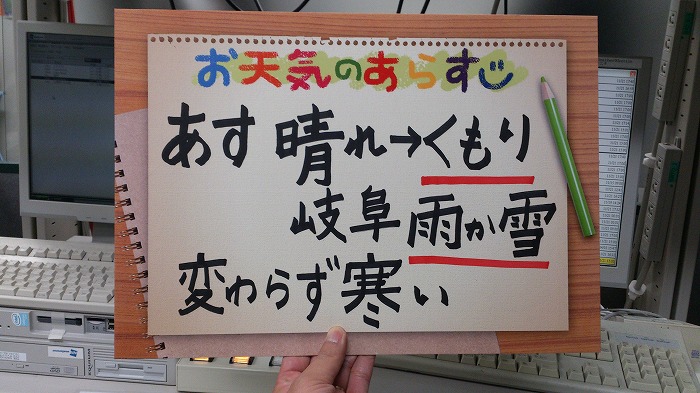 お天気のあらすじ
あす 晴れ→くもり
岐阜 雨か雪
変わらず寒い